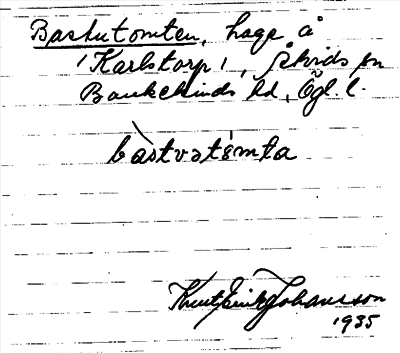 Bastutomten, hage å
'Karlstorp', Åtvids sn
Bankekinds hd, Ögl. l.
bàstvətòmta
Knut Erik Johansson
1935